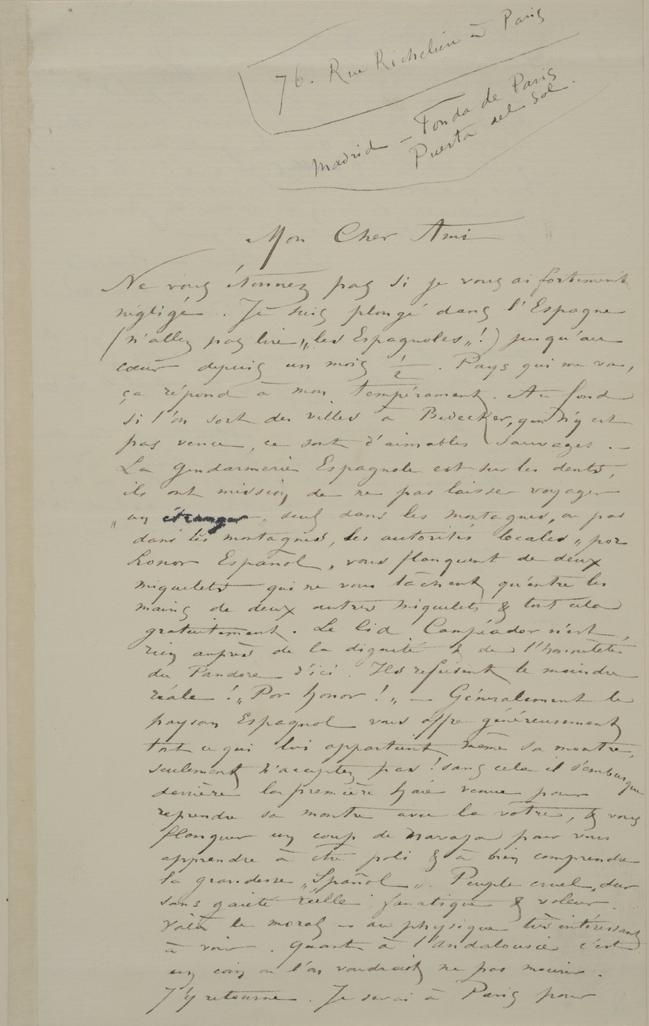 76. Rue Richelieu à Paris
Madrid – Fonda de Paris
Puerta del Sol.
Mon Cher Ami
Ne vous étonnez pas si je vous ai fortement
négligé. Je suis plongé dans l'Espagne
(n'allez pas lire „les Espagnoles„!) jusqu'au
cœur depuis un mois ½. Pays qui me va,
ça répond à mon tempérament. Au fond
si l'on sort des villes à Bedecker, qui n'y est
pas venu, ce sont d'aimables sauvages. –
La gendarmerie Espagnole est sur les dents,
ils ont mission de ne pas laisser voyager
„un étranger, seul dans les montagnes, a pas
dans les montagnes, les autorités locales „por
honor Español, vous flanquent de deux
miquelets qui ne vous lâchent qu'entre les
mains de deux autres miquelets & tout cela
gratuitement. Le Cid Campéador n'est,
rien auprès de la dignité & de l'honnêteté
du Pandore d'ici. Ils refusent le moindre
réale! „Por honor!„ – Généralement le
paysan Espagnol vous offre généreusement
tout ce qui lui appartient, même sa montre,
seulement n'acceptez pas! sans cela il s'embusque
derrière la première haie venue pour
reprendre sa montre avec la vôtre, & vous
flanquer un coup de navaja pour vous
apprendre à être poli & à bien comprendre
la grandesse „Español„. Peuple cruel, dur
sans gaieté réelle fanatique & voleur.
Voilà le moral – au physique très intéressant
à voir. Quant à l'andalousie c'est
un coin où l'on voudrait ne pas mourir.
J'y retourne. Je serai à Paris pour